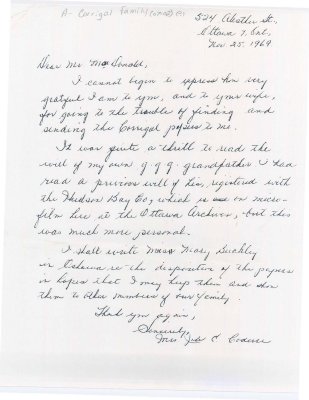 A - Corrigal family
524
Ottawa 7, Ont.
Nov 25 1969
Dear Mr MacDonald,
I cannot begin to express how very
grateful I am to you, and to your wife,
for going to the trouble of finding and
sending the Corrigal papers to me.
It was quite a thrill to read the
will of my own g.g.g. grandfather. I had
read a previous will of his, registered with
the Hudson Bay Co, which is on micro-
film here at the Ottawa Archives, - but this
was much more personal.
I shall write Miss Mary
in Oshawa re the disposition of the papers
in hopes that I may keep them and show
them to other members of our family.
Thank you again,
Sincerely,
Mrs. C